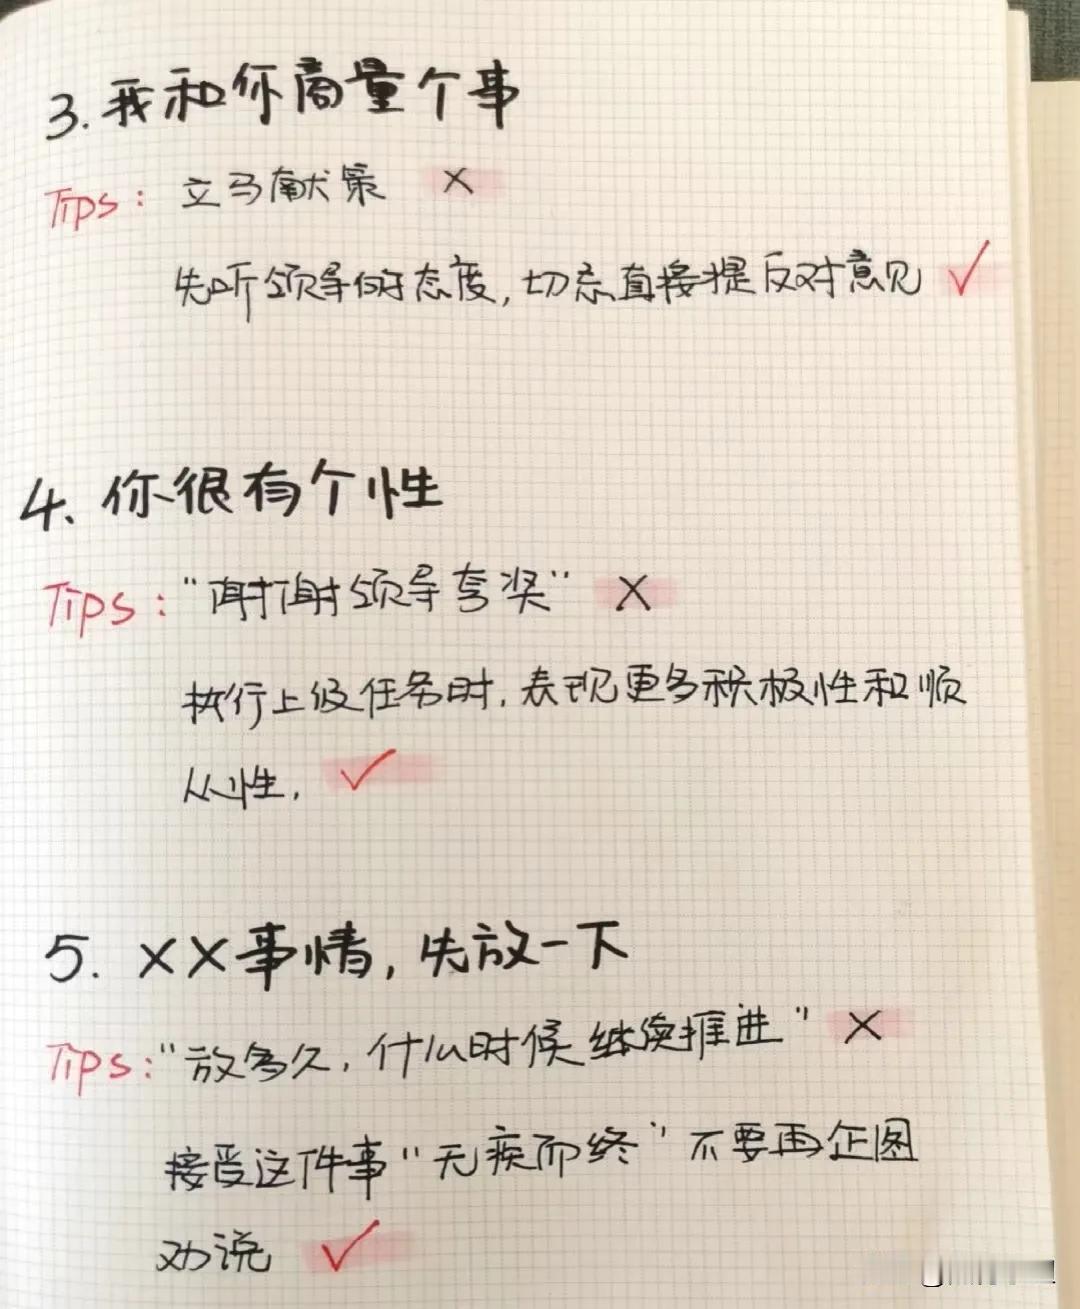 3. 我和你商量个事
Tips: 立马献策 ×
先听领导的态度,切忌直接提反对意见 ✓
4. 你很有个性
Tips: "谢谢领导夸奖" ×
执行上级任务时,表现更多积极性和顺
从性. ✓
5. ××事情,先放一下
Tips:"放多久,什么时候继续推进" ×
接受这件事"无疾而终"不要再企图
劝说 ✓